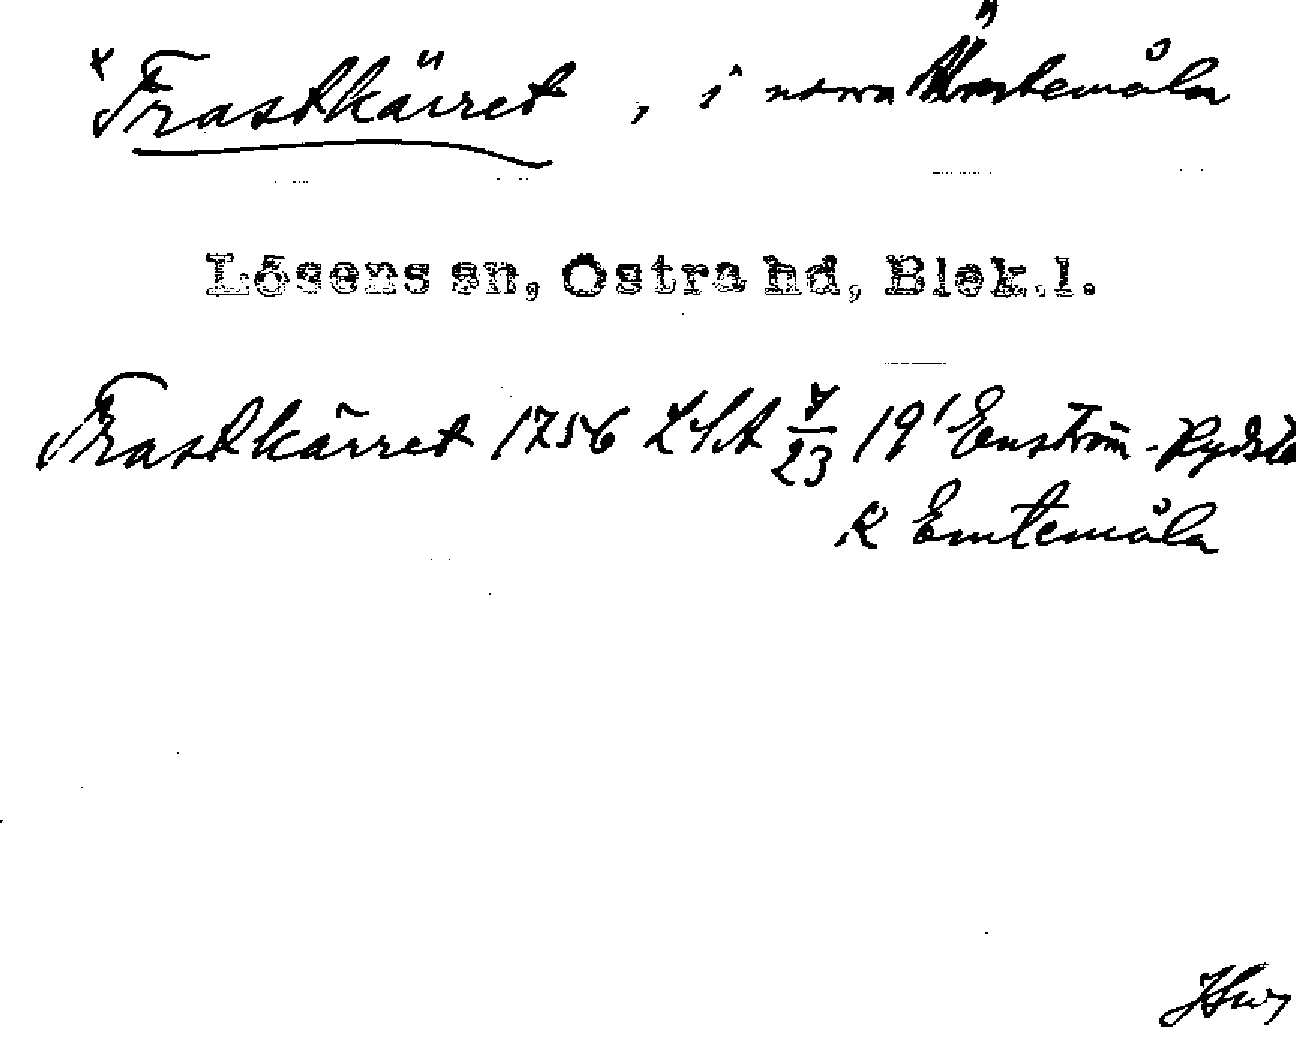 × Trastkärret, i norra Ämtemåla
Lösens sn, Östra hd, Blek.l.
Trastkärret 1756 LSA 19' Enström-Rydst
R Emtemåla